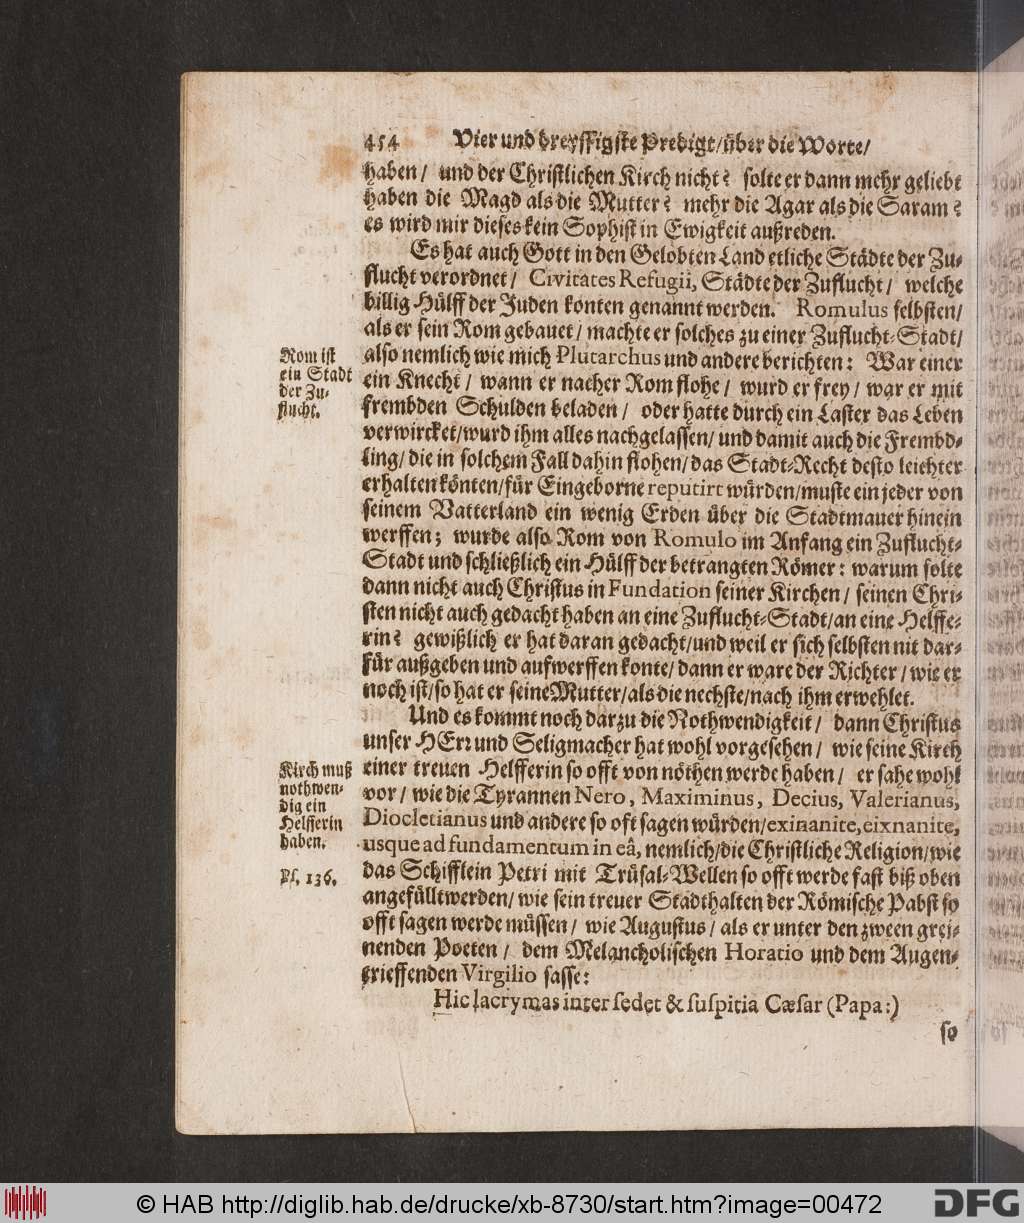 454 Vier und dreyssigste Predigt/über die Worte/
haben/ und der Christlichen Kirch nicht? solte er dann mehr geliebt
haben die Magd als die Mutter? mehr die Agar als die Saram?
es wird mir dieses kein Sophist in Ewigkeit außreden.
Es hat auch Gott in den Gelobten Land etliche Städte der Zu-
flucht verordnet/ Civitates Refugii, Städte der Zuflucht/ welche
billig Hülff der Juden konten genannt werden. Romulus selbsten/
als er sein Rom gebauet/ machte er solches zu einer Zuflucht-Stadt/
Rom ist
ein Stadt
der Zu-
flucht.
also nemlich wie mich Plutarchus und andere berichten: War einer
ein Knecht/ wann er nacher Rom flohe/ wurd er frey/ war er mit
frembden Schulden beladen/ oder hatte durch ein Laster das Leben
verwircket/wurd ihm alles nachgelassen/ und damit auch die Frembd-
ling/ die in solchem Fall dahin flohen/ das Stadt-Recht desto leichter
erhalten könten/für Eingeborne reputirt würden/muste ein jeder von
seinem Vatterland ein wenig Erden über die Stadtmauer hinein
werffen; wurde also Rom von Romulo im Anfang ein Zuflucht-
Stadt und schließlich ein Hülff der betrangten Römer: warum solte
dann nicht auch Christus in Fundation seiner Kirchen/ seinen Chri-
sten nicht auch gedacht haben an eine Zuflucht-Stadt/an eine Helffe-
rin? gewißlich er hat daran gedacht/und weil er sich selbsten nit dar-
für außgeben und aufwerffen konte/ dann er ware der Richter/ wie er
noch ist/so hat er seine Mutter/als die nechste/nach ihm erwehlet.
Und es kommt noch darzu die Nothwendigkeit/ dann Christus
unser HErr und Seligmacher hat wohl vorgesehen/ wie seine Kirch
Kirch muß
nothwen-
dig ein
Helfferin
haben.
einer treuen Helfferin so offt von nöthen werde haben/ er sahe wohl
vor/ wie die Tyrannen Nero, Maximinus, Decius, Valerianus,
Diocletianus und andere so oft sagen würden/exinanite, eixnanite,
usque ad fundamentum in eâ, nemlich/die Christliche Religion/wie
Ps. 136.
das Schifflein Petri mit Trüsal-Wellen so offt werde fast biß oben
angefüllt werden/ wie sein treuer Stadthalten der Römische Pabst so
offt sagen werde müssen/ wie Augustus/ als er unter den zween grei-
nenden Poeten/ dem Melancholischen Horatio und dem Augen-
trieffenden Virgilio sasse:
Hic lacrymas inter sedet & suspitia Cæsar (Papa:)
so
© HAB http://diglib.hab.de/drucke/xb-8730/start.htm?image=00472
DFG